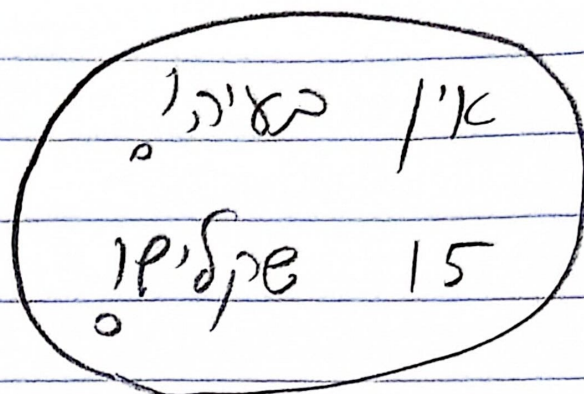 אין בעיה!
15 שקלים!